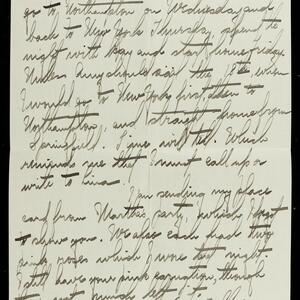 go to Northampton on Wednesday and
back to New York Thursday, spend the
night with Kay and start home Friday.
Unless Amy should sail the 18th when
I would go to New York first then to
Northampton, and straight home from
Springfield. Time will tell. Which
reminds me that I must call up or
write to
I'm sending my place
card from Martha's party, which I forgot
to show you. We also each had two
pink roses which I wore that night.
I still have your pink carnation, though
not much left